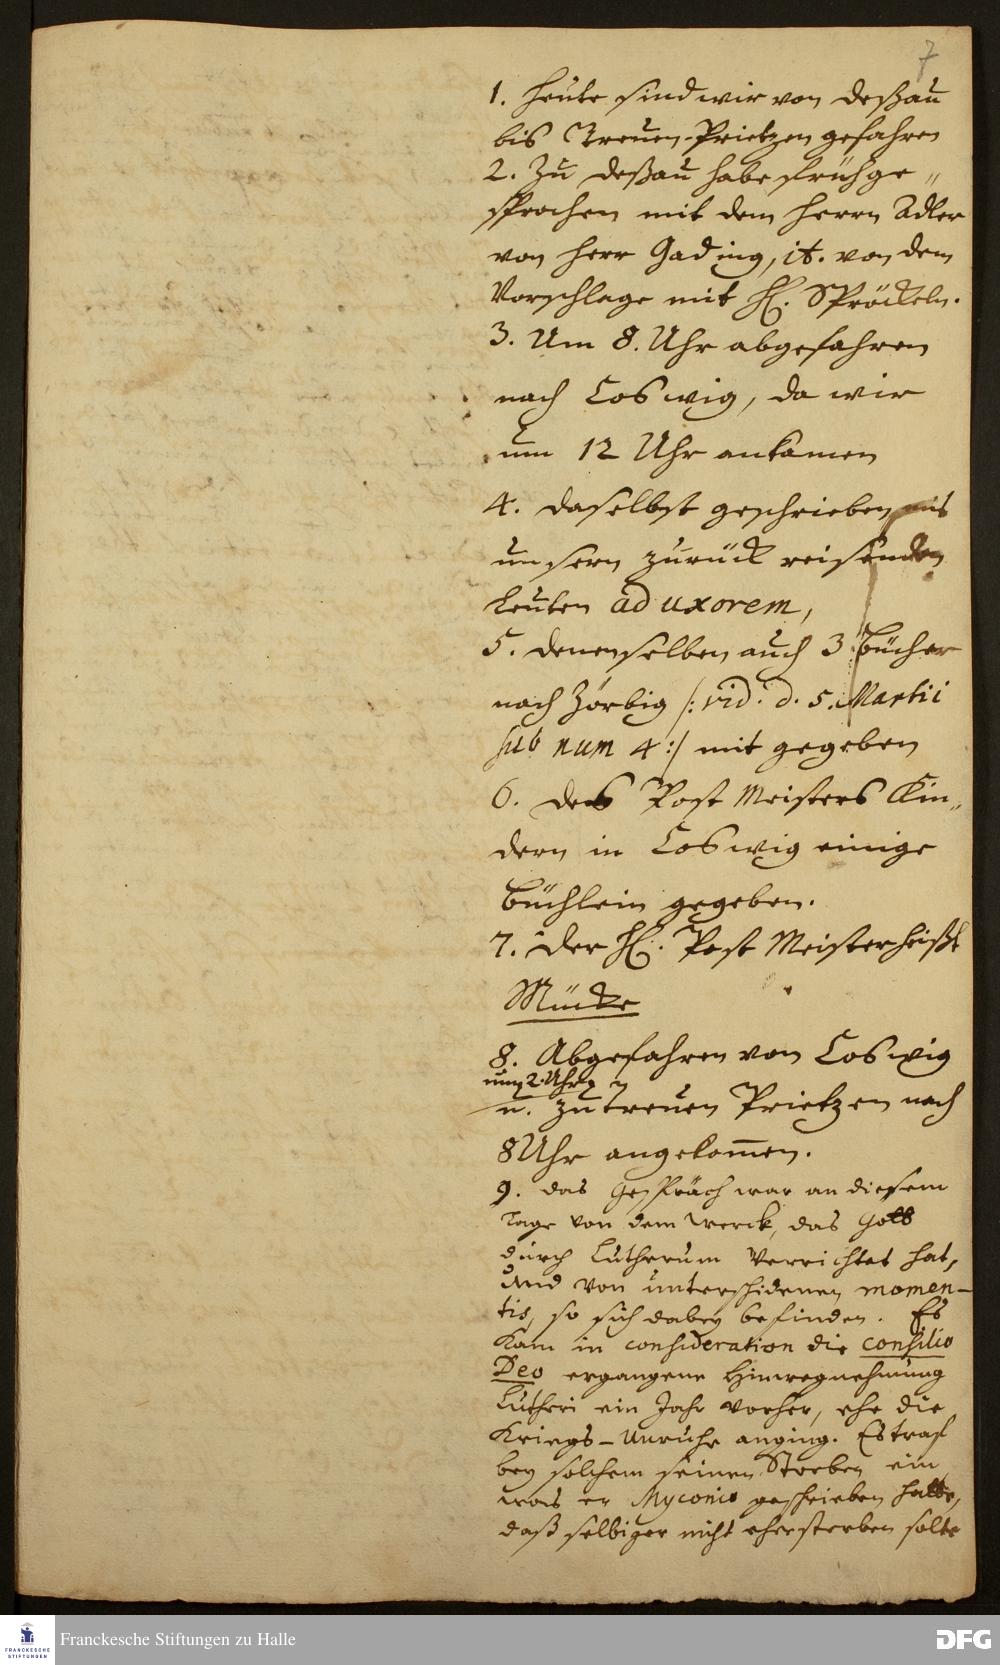 7
1. Heute sind wir von Deßau
bis Treuen-Prietzen gefahren
2. Zu Deßau habe früh ge„
sprochen mit dem Herrn Adler
von Herr Gading, it. von dem
Vorschlage mit H. Spröckeln.
3. Um 8. Uhr abgefahren
nach Coswig, da wir
um 12 Uhr ankamen
4. daselbst geschrieben mit
unsern zurück reisenden
Leuten ad uxorem,
5. denenselben auch 3 Bücher
nach Zörbig /: vid. d. 5. Martii
sub num 4 :/ mit gegeben
6. des Post Meisters Kin„
dern in Coswig einige
Büchlein gegeben.
7. Der H. Post Meister heißt
Mücke
8. Abgefahren von Coswig
um 2. Uhr
u. zu Treuen Prietzen nach
8 Uhr angekom̄en.
9. das Gespräch war an diesem
Tage von dem Werck, das Gott
durch Lutherum verrichtet hat,
und von unterschidenen momen-
tis, so sich dabey befinden. Es
kam in consideration die consilio
Deo ergangene Hinwegnehmung
Lutheri ein Jahr vorher, ehe die
Kriegs-Unruhe anging. Es traf
bey solchem seinen Sterben ein
was er Myconio geschrieben hatte,
daß selbiger nicht eher sterben solte
Franckesche Stiftungen zu Halle
FRANCKESCHE
STIFTUNGEN
DFG